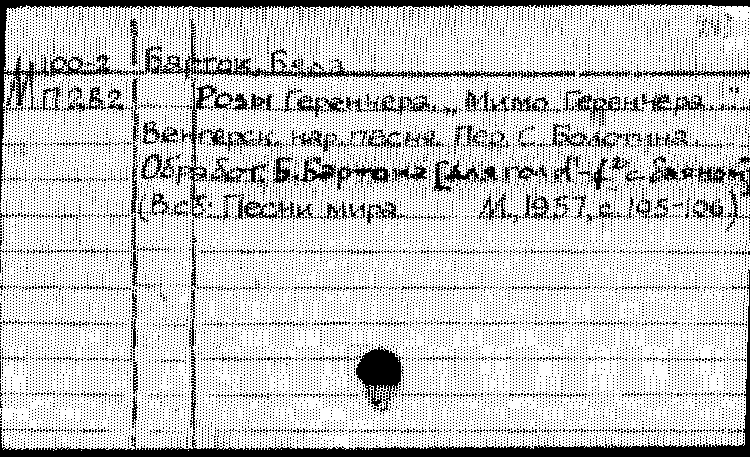 М 100-2 Барток, Бела
П 282 Розы Геренчера. „Мимо Геренчера..."
Венгерск. нар. песня. Пер. С. Болотина.
Обработ. Б. Бартока [для гол.
(В сб: Песни мира. М., 1957, с. 105-106)